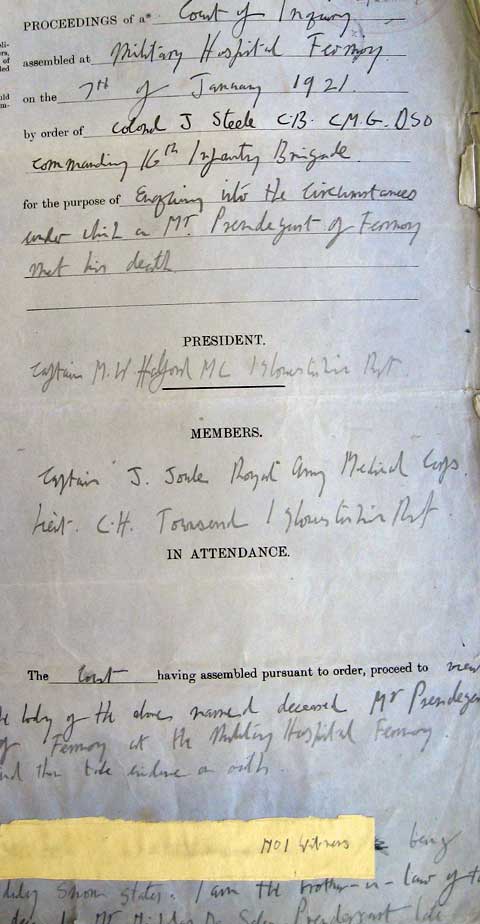 PROCEEDINGS of a* Court of Inquiry
assembled at Military Hospital Fermoy
on the 7th of January 1921.
by order of Colonel J Steele C.B. C.M.G. DSO
commanding 16th Infantry Brigade
for the purpose of Enquiring into the Circumstances
under which a Mr. Prendergast of Fermoy
met his death
PRESIDENT.
Captain M.W Halford MC 1 Gloucestershire Rgt.
MEMBERS.
Captain J. Soule Royal Army Medical Corps.
Lieut. C.H. Townsend 1 Gloucestershire Rgt.
IN ATTENDANCE.
The Court having assembled pursuant to order, proceed to view
body of the above named deceased Mr Prendergas
of Fermoy at the Military Hospital Fermoy.
and then take evidence on oath.
No 1 Witness being
duly sworn states. I am the brother-in-law of
Mr Prendergast